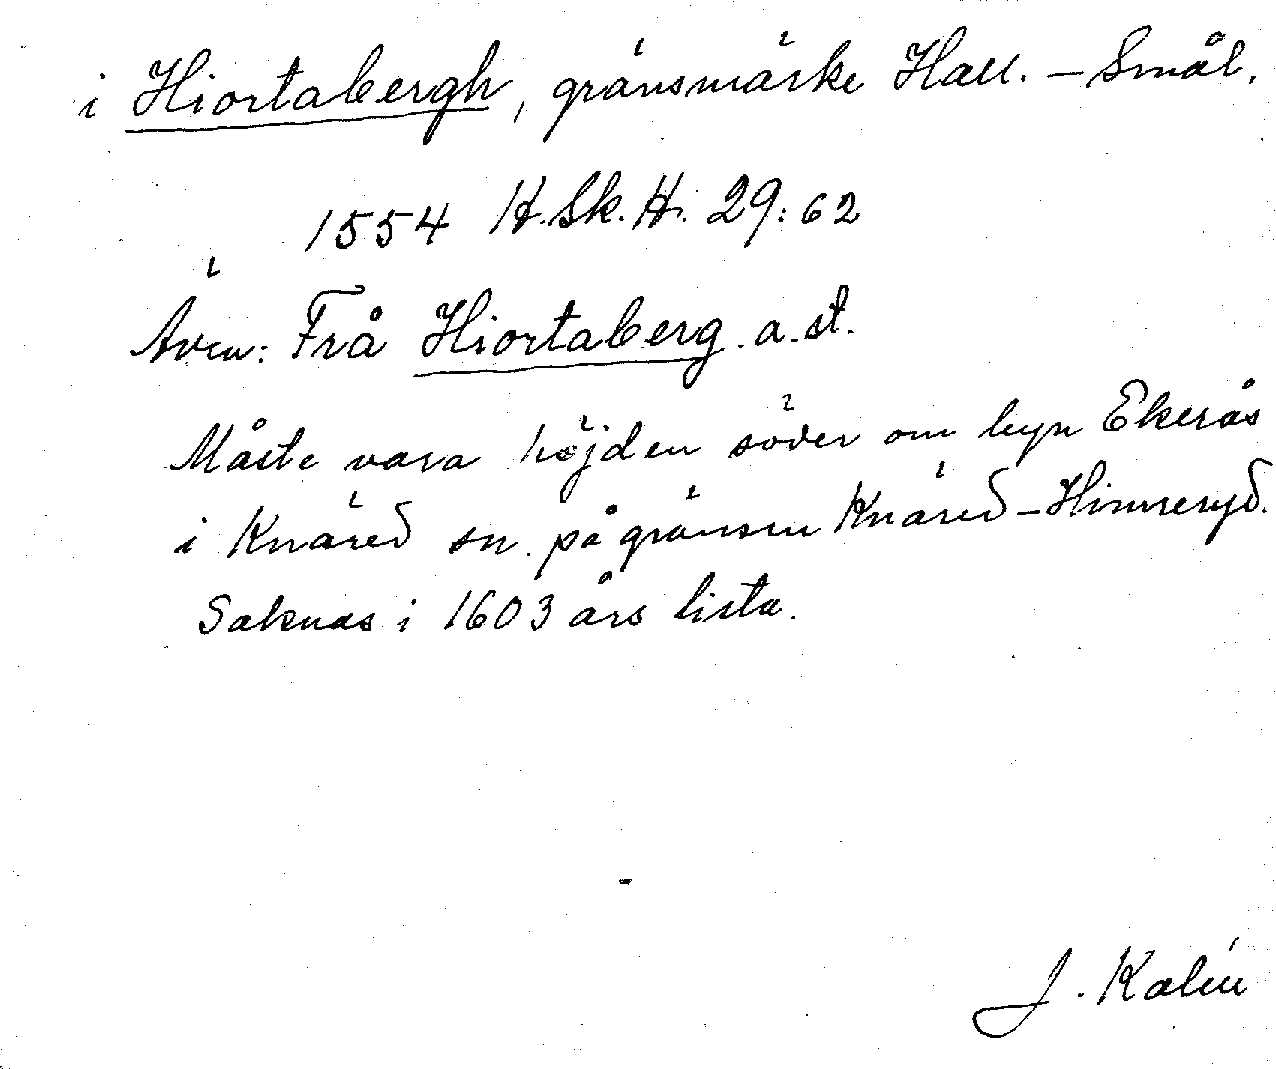 i Hiortabergh, gränsmärke Hall. – Smål.
1554 H. Sk. H. 29:62
Även: Frå Hiortaberg a. st.
Måste vara höjden söder om byn Ekerås
i Knäred sn. på gränsen Knäred – Hinneryd.
Saknas i 1603 års lista.
J. Kalén